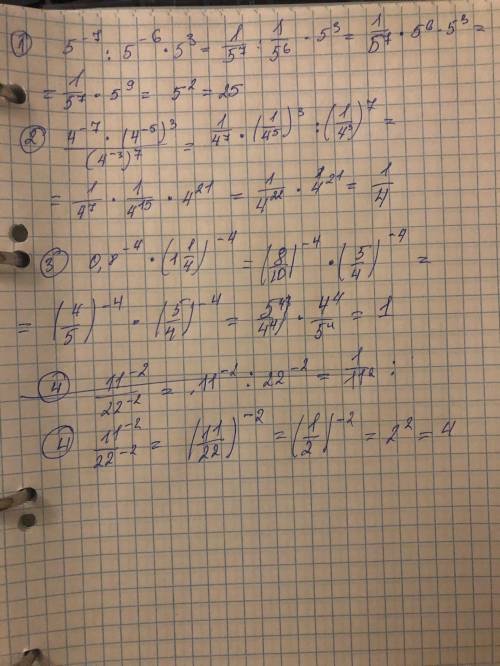 ① 5⁻⁷ : 5⁻⁶ · 5³ = 1/5⁷ : 1/5⁶ · 5³ = 1/5⁷ · 5⁶ · 5³ =
= 1/5⁷ · 5⁹ = 5² = 25
② 4⁻⁷ · (4⁻⁵)³ / (4⁻³)⁷ = 1/4⁷ · (1/4⁵)³ : (1/4³)⁷ =
= 1/4⁷ · 1/4¹⁵ · 4²¹ = 1/4²² · 4²¹ = 1/4
③ 0,8⁻⁴ · (1 1/4)⁻⁴ = (8/10)⁻⁴ · (5/4)⁻⁴ =
= (4/5)⁻⁴ · (5/4)⁻⁴ = 5⁴/4⁴ · 4⁴/5⁴ = 1
④ 11⁻²/22⁻² = 11⁻² : 22⁻² = 1/11² :
④ 11⁻²/22⁻² = (11/22)⁻² = (1/2)⁻² = 2² = 4